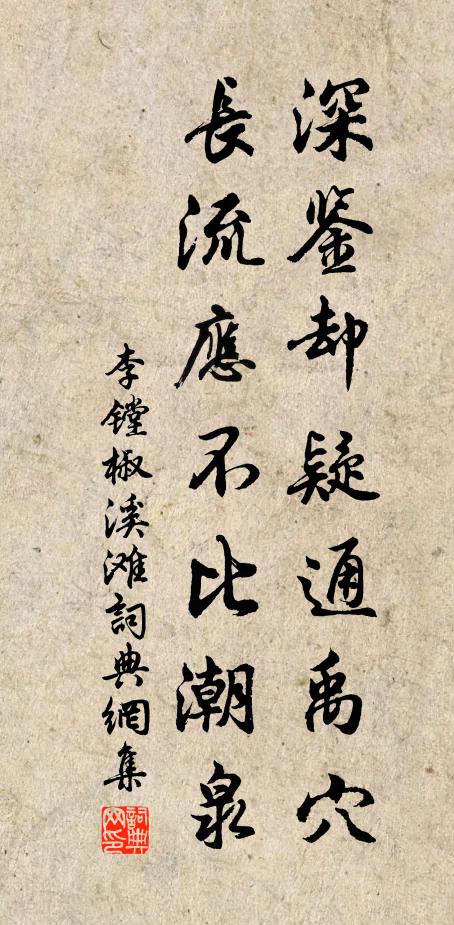 深鉴却疑通禹穴
長流應不比潮泉
李镗椒溪滩詞典網集
詞典網印